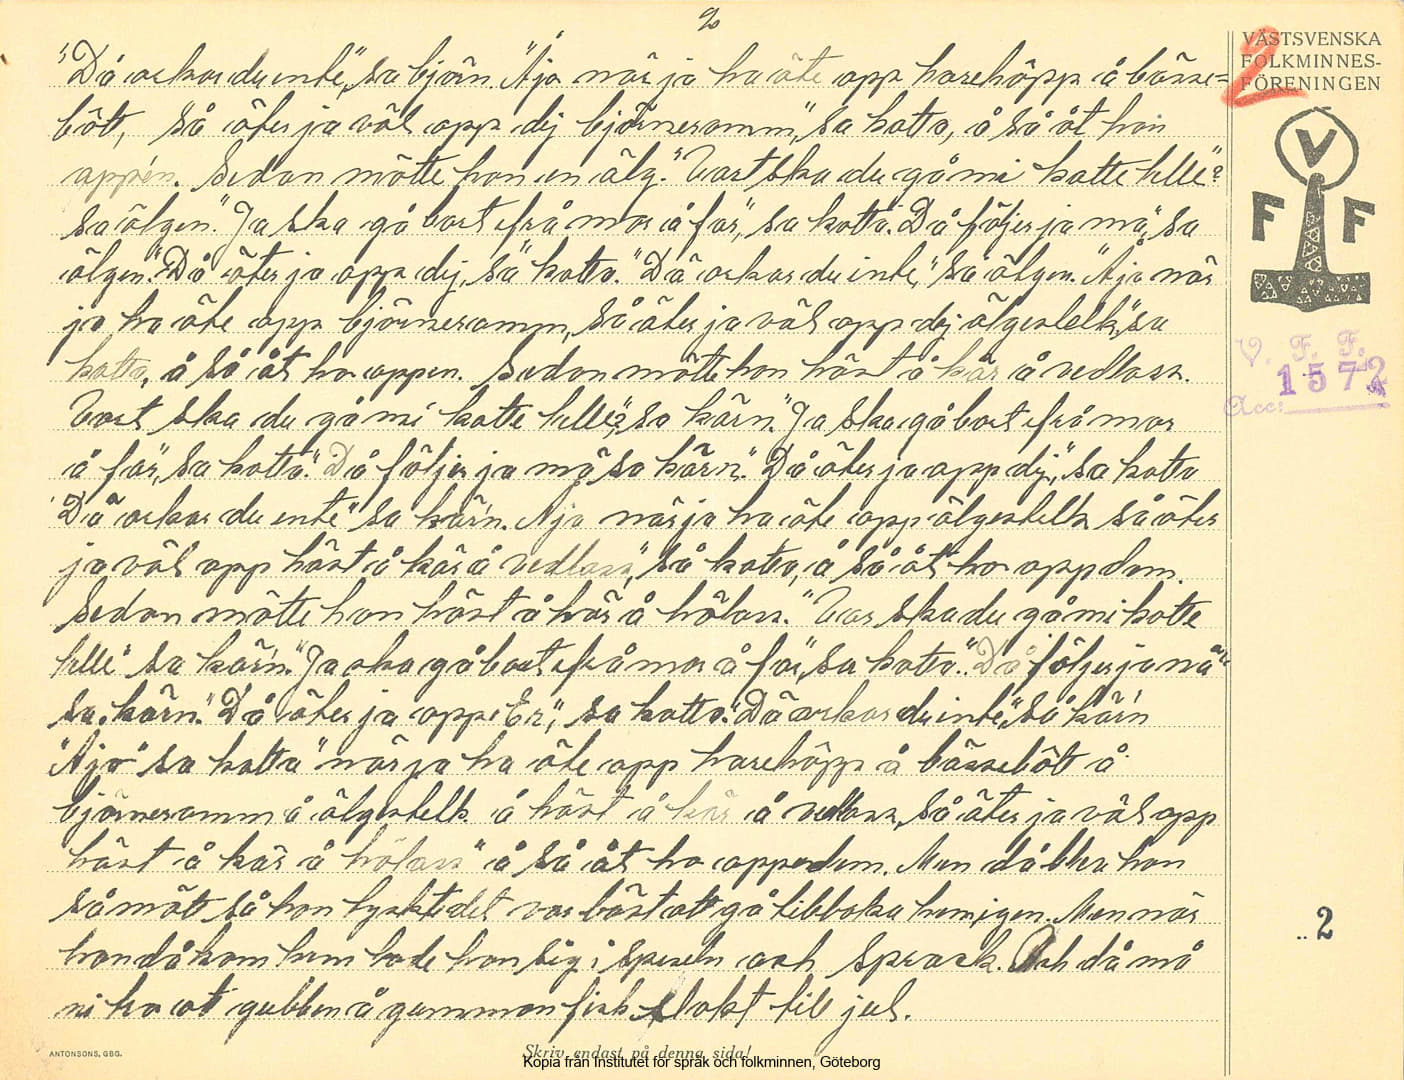 2
"Då orkar du inte", sa björn. "Ajo när ja ha äte opp harehöpp å bässe-
bött, så äter ja väl opp dej björneramm", sa katta, å så åt hon
oppen. Sedan mötte hon en älg. "Vart ska du gå mi katte lelle"?
sa älgen. "Ja ska gå bort ifrå mor å far", sa katta. "Då följer ja mä", sa
älgen. "Då äter ja opp dej, sa" katta. "Dä orkar du inte," sa älgen. "Ajo när
ja ha äte opp björneramm, så äter ja väl opp dej älgestelk", sa
katta, å så åt ho oppen. Sedan mötte hon häst å kär å vedlass.
Vart ska du gå mi katte lelle"? sa kärn. "Ja ska gå bort ifrå mor
å far", sa katta. "Då följer ja mä, sa kärn". "Då äter ja opp dej", sa katta
"Dä orkar du inte" sa kär'n. Ajo när ja ha äte opp älgestelk så äter
ja väl opp häst å kär å vedlass", sa katta, å så åt ho opp dem.
Sedan mötte hon häst å kär å hölass. "Var ska du gå mi katte
lelle" sa kär'n. "Ja ska gå bort ifrå mor å far", sa katta. "Då följer ja mä"
sa kärn. "Då äter ja opp Er", sa katta. "Dä orkar du inte", sa kär'n
"Ajo" sa katta "när ja ha äte opp harehöpp å bässebött å
björneramm å älgestelk å häst å kär å vedlass, så äter ja väl opp
häst å kär å hölass" å så åt ho oppedem. Men då blev hon
så mätt så hon tyckte det var bäst att gå tillbaka hem igen. Men när
hon då kom hem lade hon sig i speseln och sprack. Och då må
ni tro at gubben å gumman fick slakt till jul.
VÄSTSVENSKA
FOLKMINNES-
FÖRENINGEN
2
V
F F
V. F. F.
1572
Acc:
2
ANTONSONS, GBG.
Skriv endast på denna sida!
Kopia från Institutet för språk och folkminnen, Göteborg